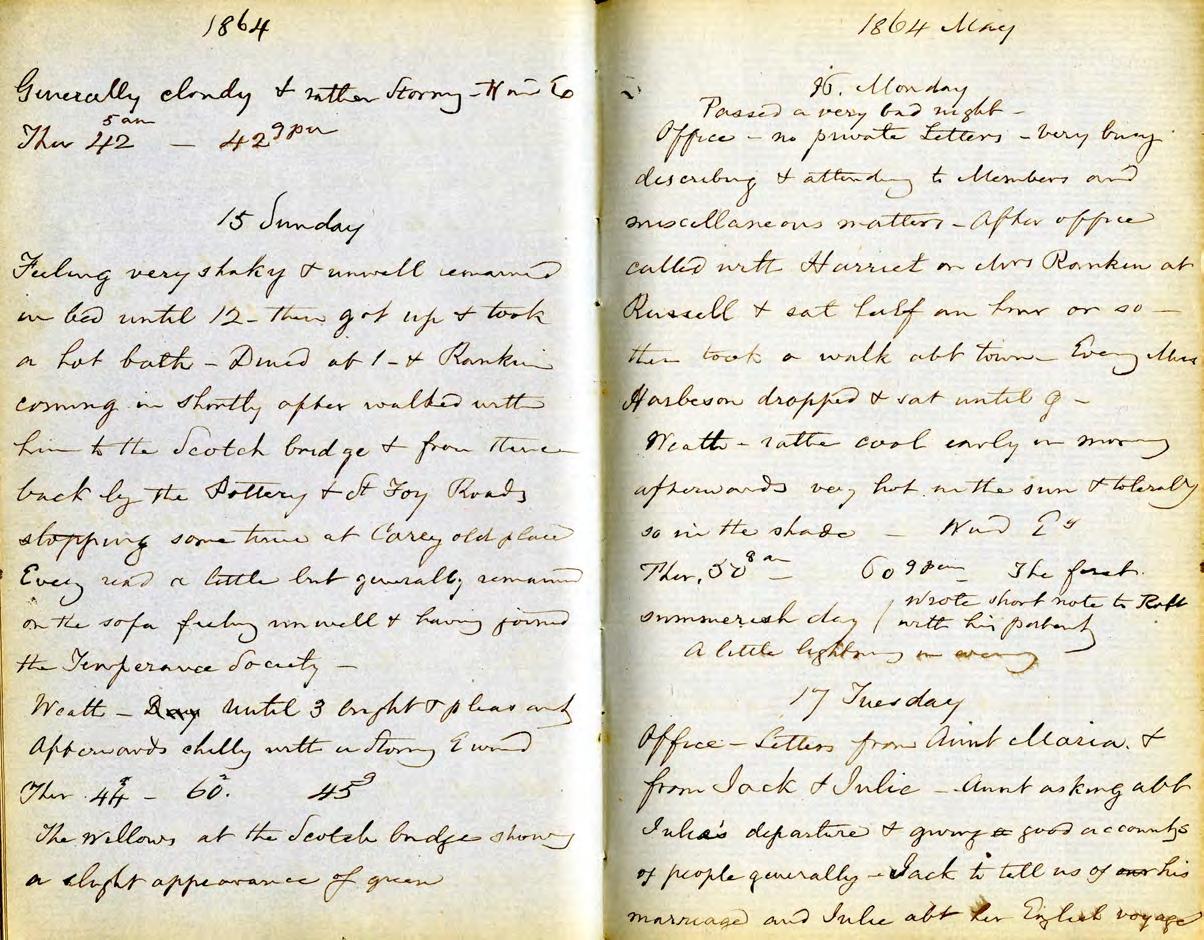 1864
Generally cloudy & rather Stormy - Wind E
Ther 42 5 am — 42 9 pm
15 Sunday
Feeling very shaky & unwell remained
in bed until 12 - then got up & took
a hot bath - Dined at 1 - & Rankin
coming in shortly after walked with
him to the Scotch bridge & from thence
back by the Pottery & St Foy Roads
stopping some time at Carey old place
Eveng read a little but generally remained
on the sofa feeling unwell & having joined
the Temperance Society -
Weath - Day until 3 bright & pleasant
Afterwards chilly with a Stormy E wind
Ther. 44 - 60 2. 45 9
The Willows at the Scotch bridge showing
a slight appearance of green
1864 May
16. Monday
Passed a very bad night -
Office - no private Letters - very busy
describing & attending to Members and
miscellaneous matters - After office
called with Harriet on Mrs Rankin at
Russell & sat half an hour or so -
then took a walk abt town - Eveng Mrs
Harbeson dropped & sat until 9 -
Weath - rather cool early in morning
afterwards very hot in the sun & tolerably
so in the shade - Wind Ey
Ther. 50 8 am — 60 9 pm The first
summerish day / Wrote short note to Robt
with his
A little lightning in evening
17 Tuesday
Office - Letters from Aunt Maria. &
from Jack & Julie - Aunt asking abt
Julia's departure & giving a good accounts
of people generally - Jack to tell us of our his
marriage and Julie abt her English voyage